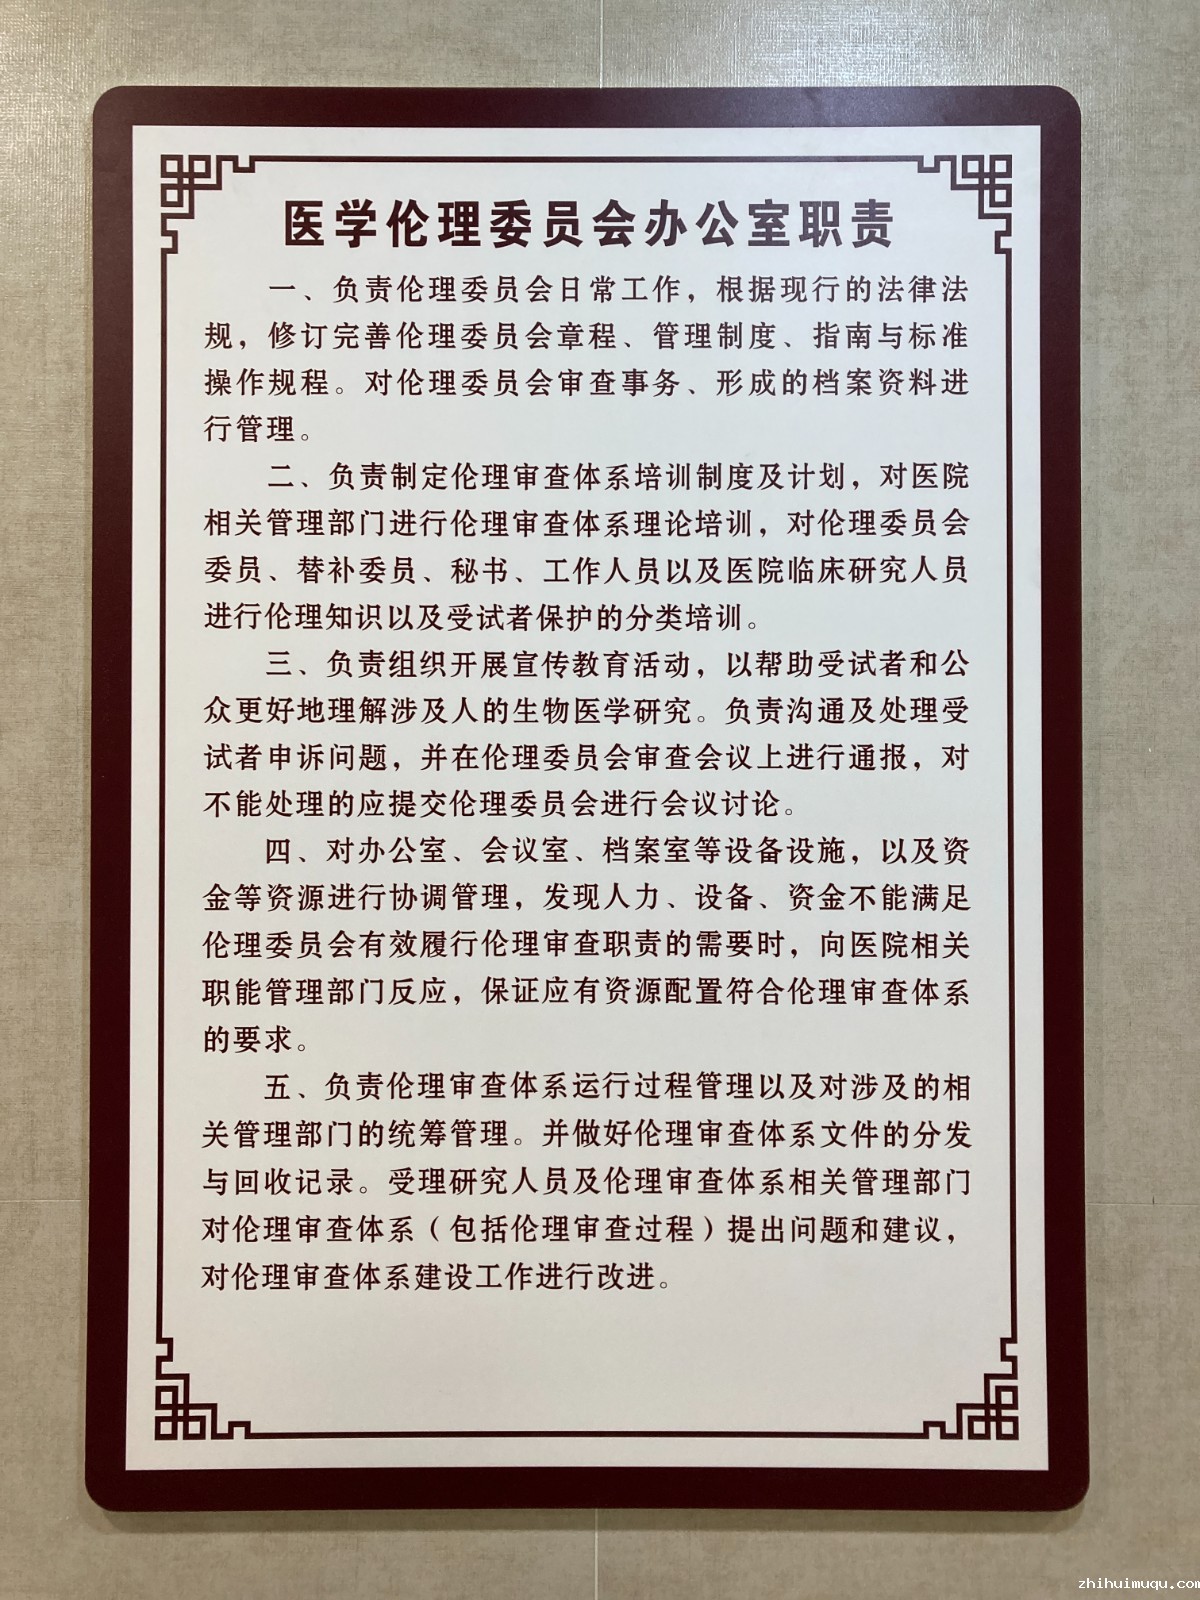 医学伦理委员会办公室职责
一、负责伦理委员会日常工作，根据现行的法律法
规，修订完善伦理委员会章程、管理制度、指南与标准
操作规程。对伦理委员会审查事务、形成的档案资料进
行管理。
二、负责制定伦理审查体系培训制度及计划，对医院
相关管理部门进行伦理审查体系理论培训，对伦理委员会
委员、替补委员、秘书、工作人员以及医院临床研究人员
进行伦理知识以及受试者保护的分类培训。
三、负责组织开展宣传教育活动，以帮助受试者和公
众更好地理解涉及人的生物医学研究。负责沟通及处理受
试者申诉问题，并在伦理委员会审查会议上进行通报，对
不能处理的应提交伦理委员会进行会议讨论。
四、对办公室、会议室、档案室等设备设施，以及资
金等资源进行协调管理，发现人力、设备、资金不能满足
伦理委员会有效履行伦理审查职责的需要时，向医院相关
职能管理部门反应，保证应有资源配置符合伦理审查体系
的要求。
五、负责伦理审查体系运行过程管理以及对涉及的相
关管理部门的统筹管理。并做好伦理审查体系文件的分发
与回收记录。受理研究人员及伦理审查体系相关管理部门
对伦理审查体系（包括伦理审查过程）提出问题和建议，
对伦理审查体系建设工作进行改进。
zhihuimuqu.com